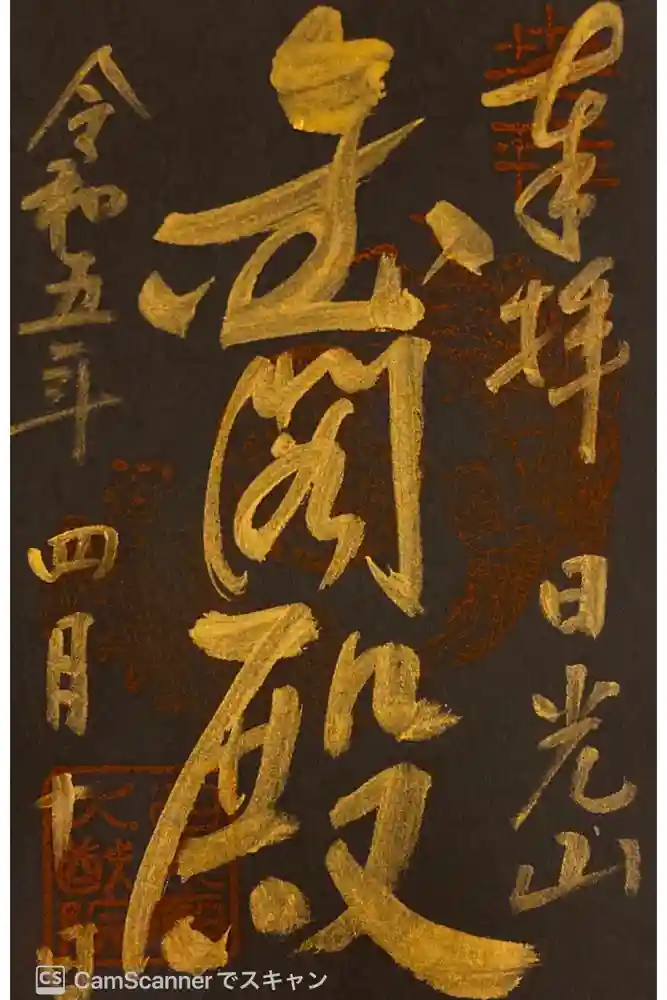 奉拝 日光山
金閣殿
令和五年 四月十日
大猷院
CS CamScannerでスキャン